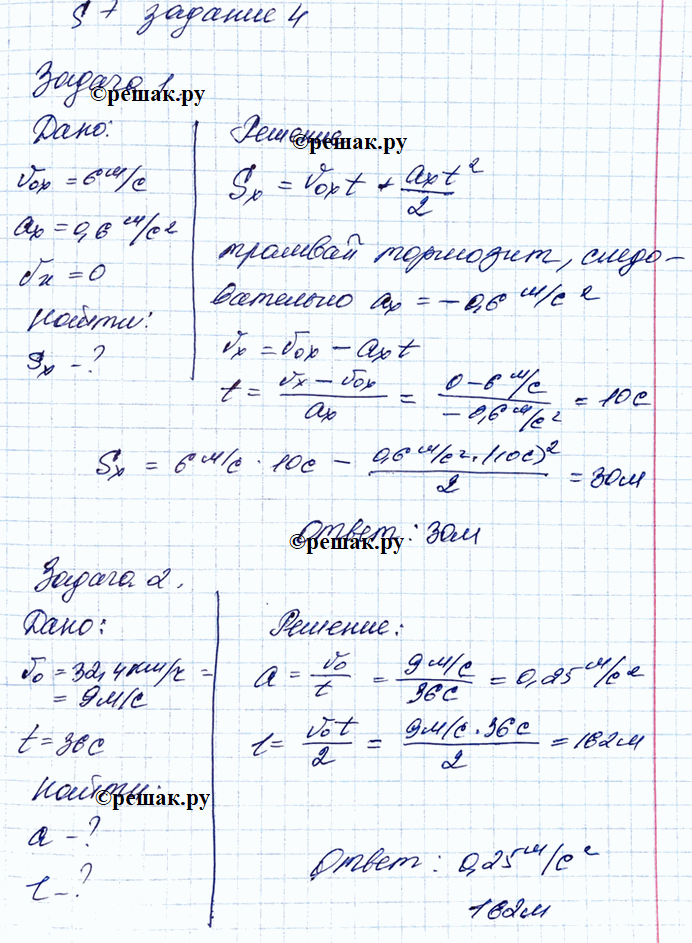 § 7 задание 4
Задача 1
©решак.ру
Дано:
v₀ₓ = 6 м/с
aₓ = 0,6 м/с²
vₓ = 0
Найти:
Sₓ - ?
Решение
©решак.ру
Sₓ = v₀ₓt + aₓt²/2
трамвай тормозит, следо-
вательно aₓ = -0,6 м/с²
vₓ = v₀ₓ - aₓt
t = (vₓ - v₀ₓ)/aₓ = (0 - 6 м/с)/(-0,6 м/с²) = 10с
Sₓ = 6 м/с · 10с - (0,6 м/с² · (10с)²)/2 = 30м
Ответ: 30м
©решак.ру
Задача 2.
Дано:
v₀ = 32,4 км/ч =
= 9 м/с
t = 36с
Найти:
©решак.ру
a - ?
l - ?
Решение:
a = v₀/t = 9 м/с/36с = 0,25 м/с²
l = v₀t/2 = (9 м/с · 36с)/2 = 162м
Ответ: 0,25 м/с²
162м